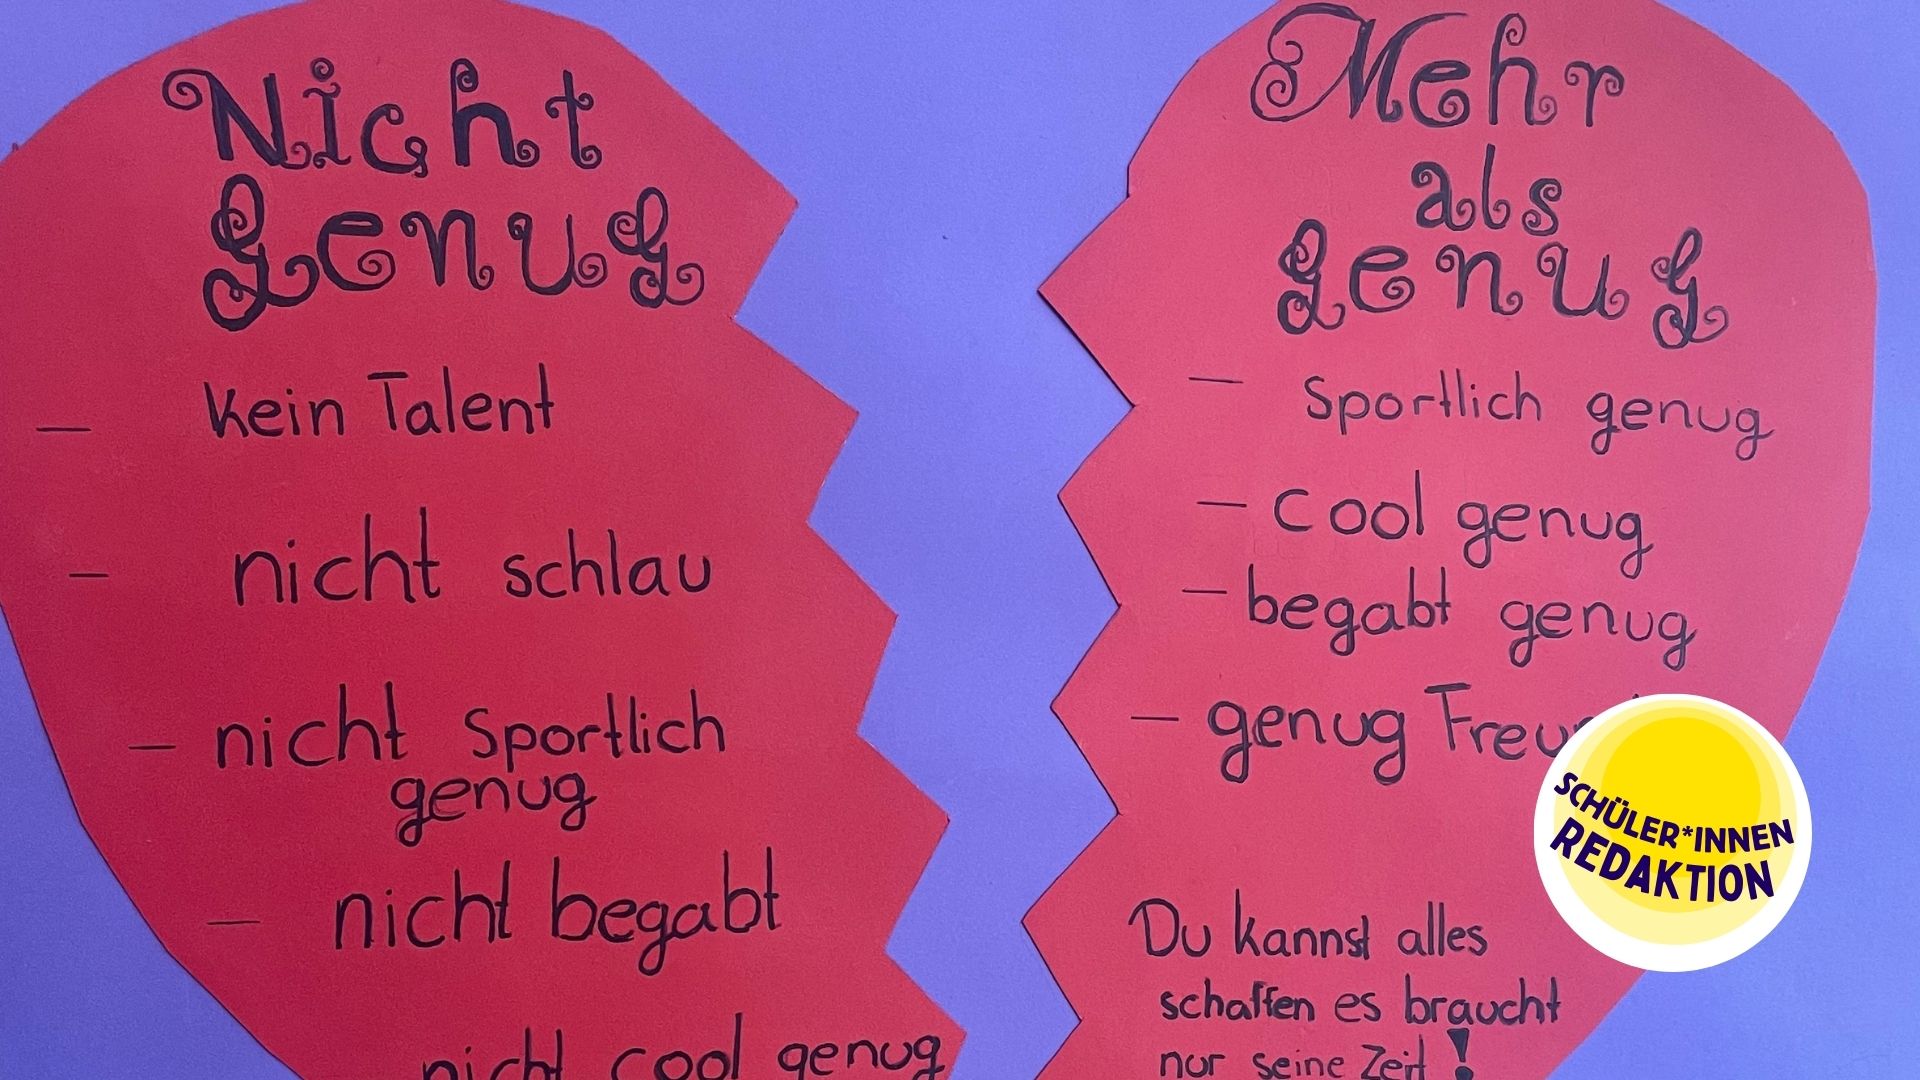 Nicht
Genug
- kein Talent
- nicht schlau
- nicht sportlich
genug
- nicht begabt
nicht cool genug
Mehr
als
genug
- sportlich genug
- cool genug
- begabt genug
- genug
Du kannst alles
schaffen es braucht
nur seine Zeit!
SCHÜLER*INNEN
REDAKTION